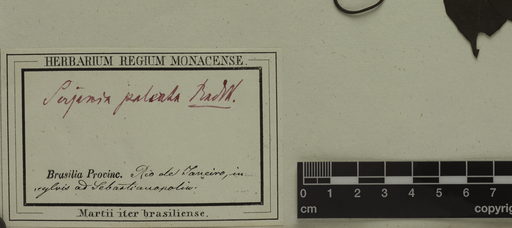 HERBARIUM REGIUM MONACENSE.
Serjania paleata Radlk.
Brasilia Provinc. Rio de Janeiro, in
sylvis ad Sebastianopolin.
Martii iter brasiliense.
0 1 2 3 4 5 6 7
cm copyrig